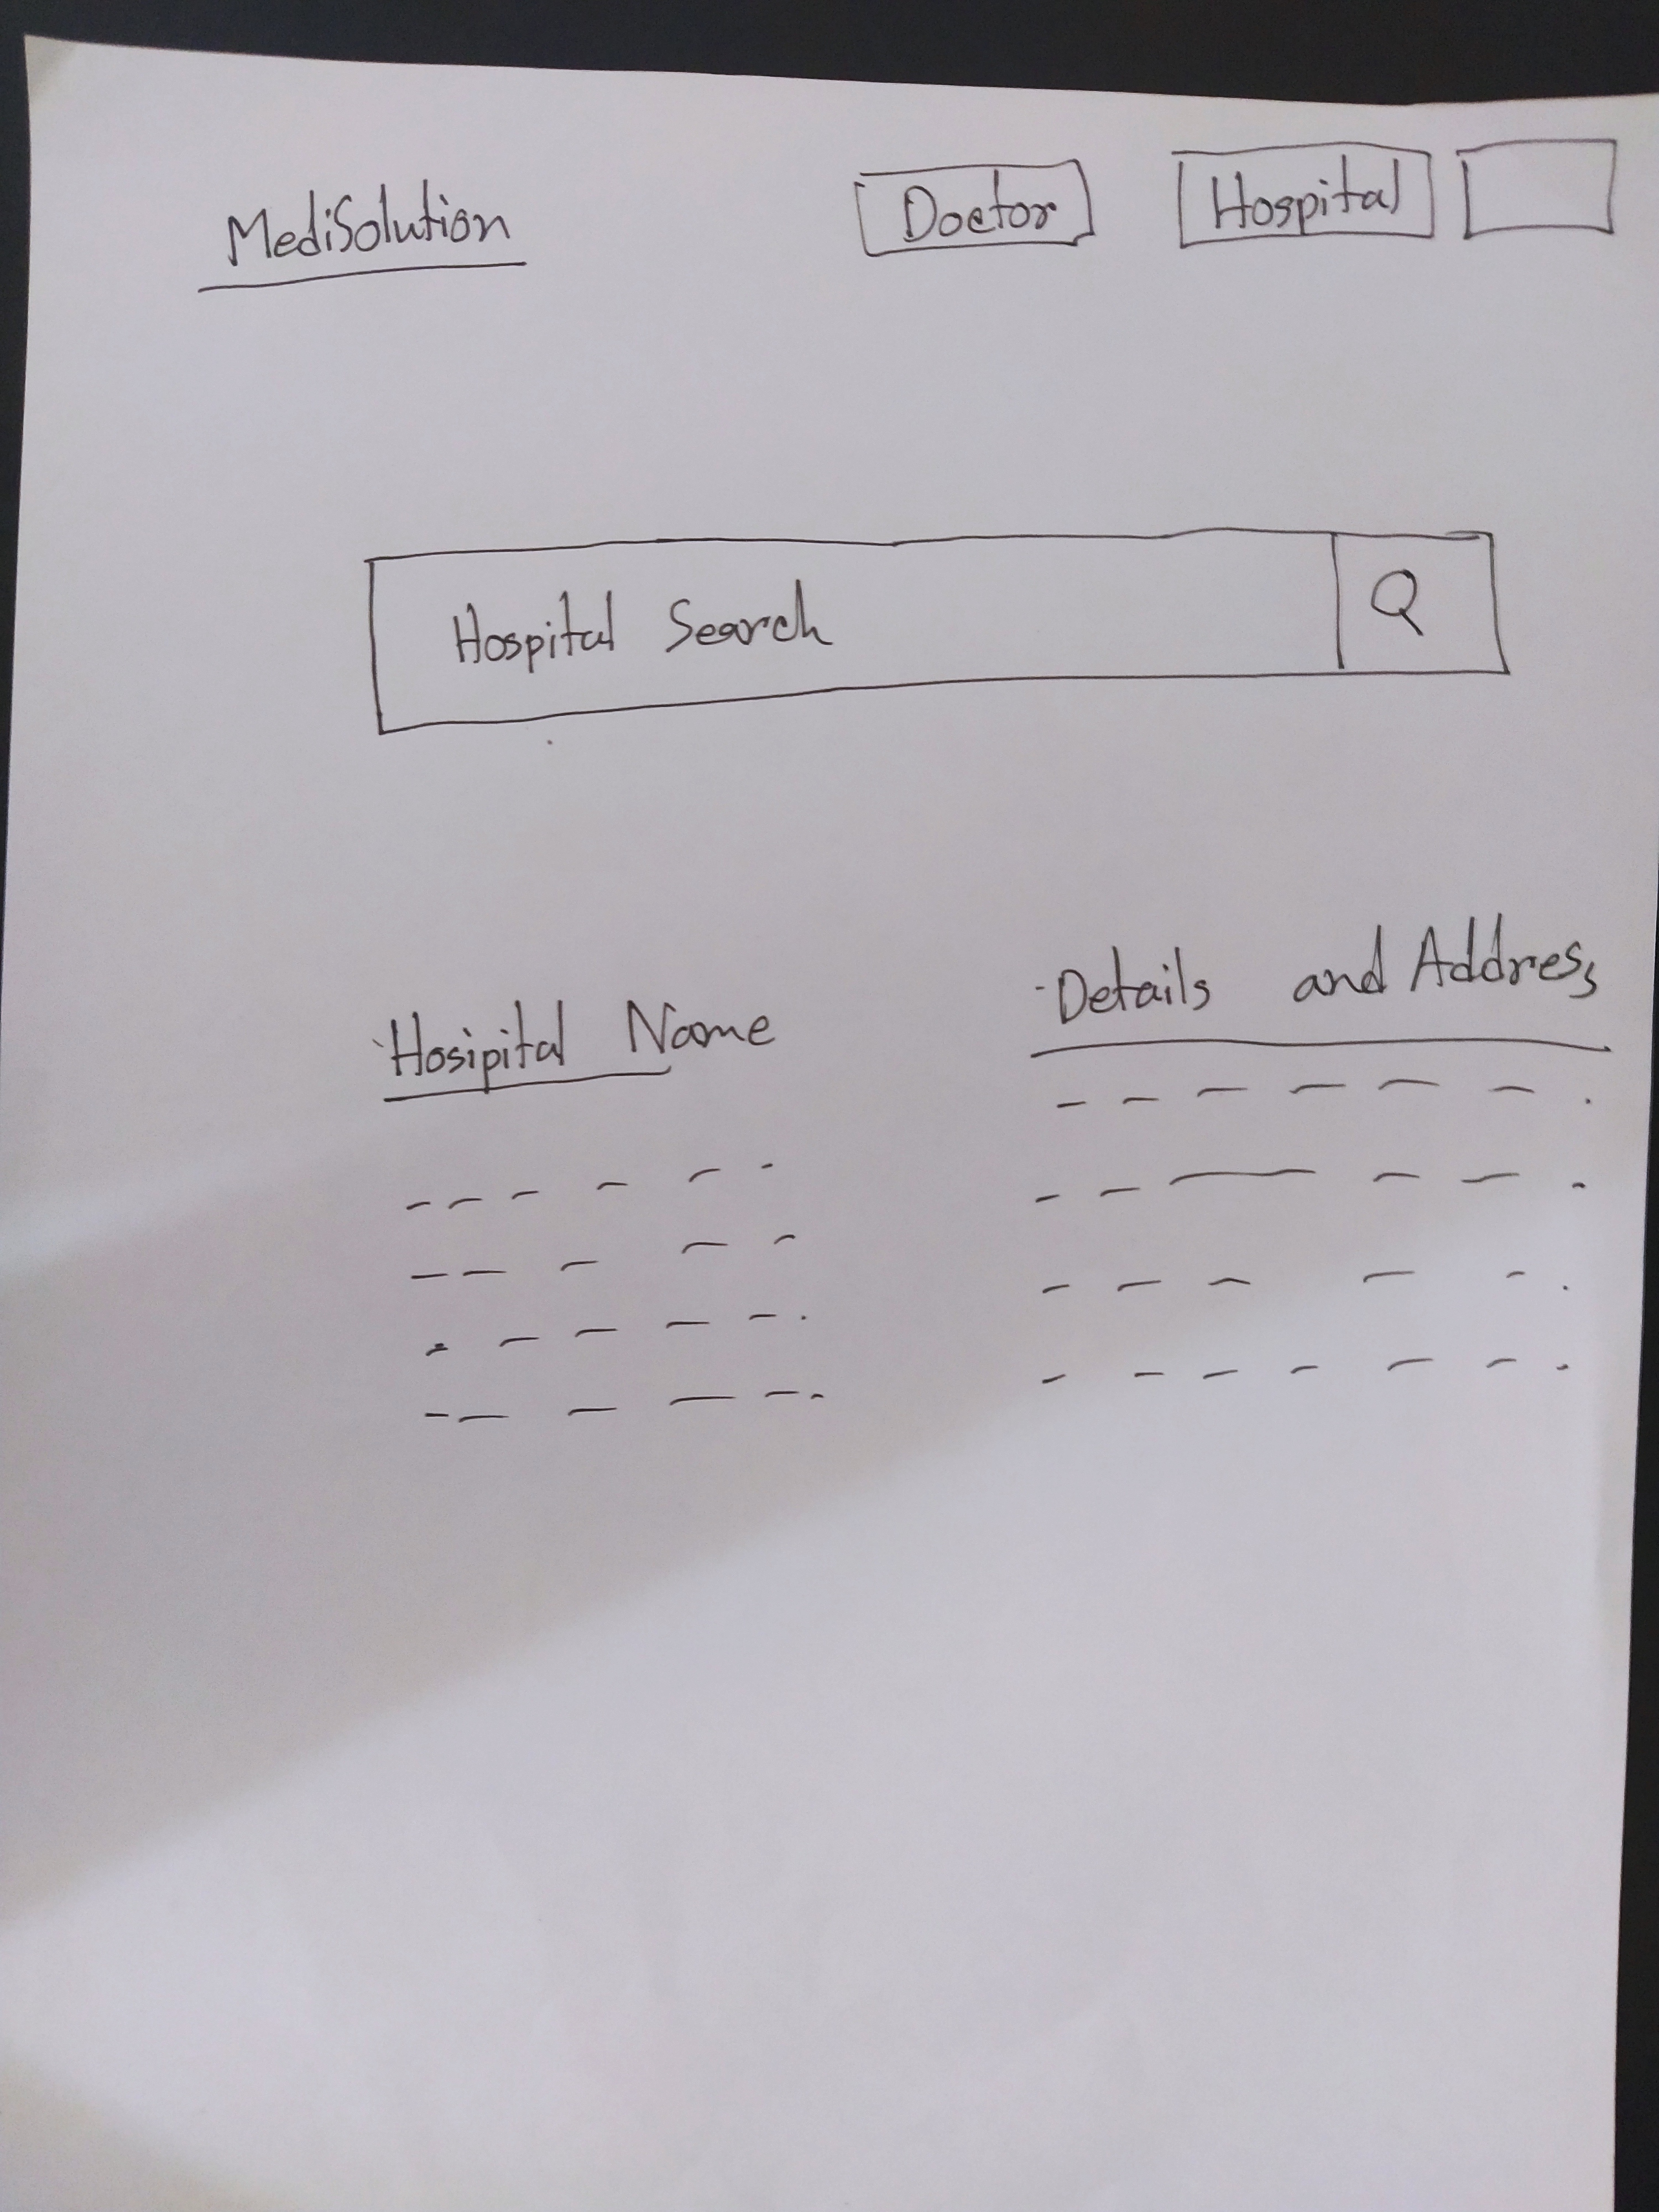 MediSolution
Doctor
Hospital
Hospital Search
Q
Hosipital Name
Details and Address